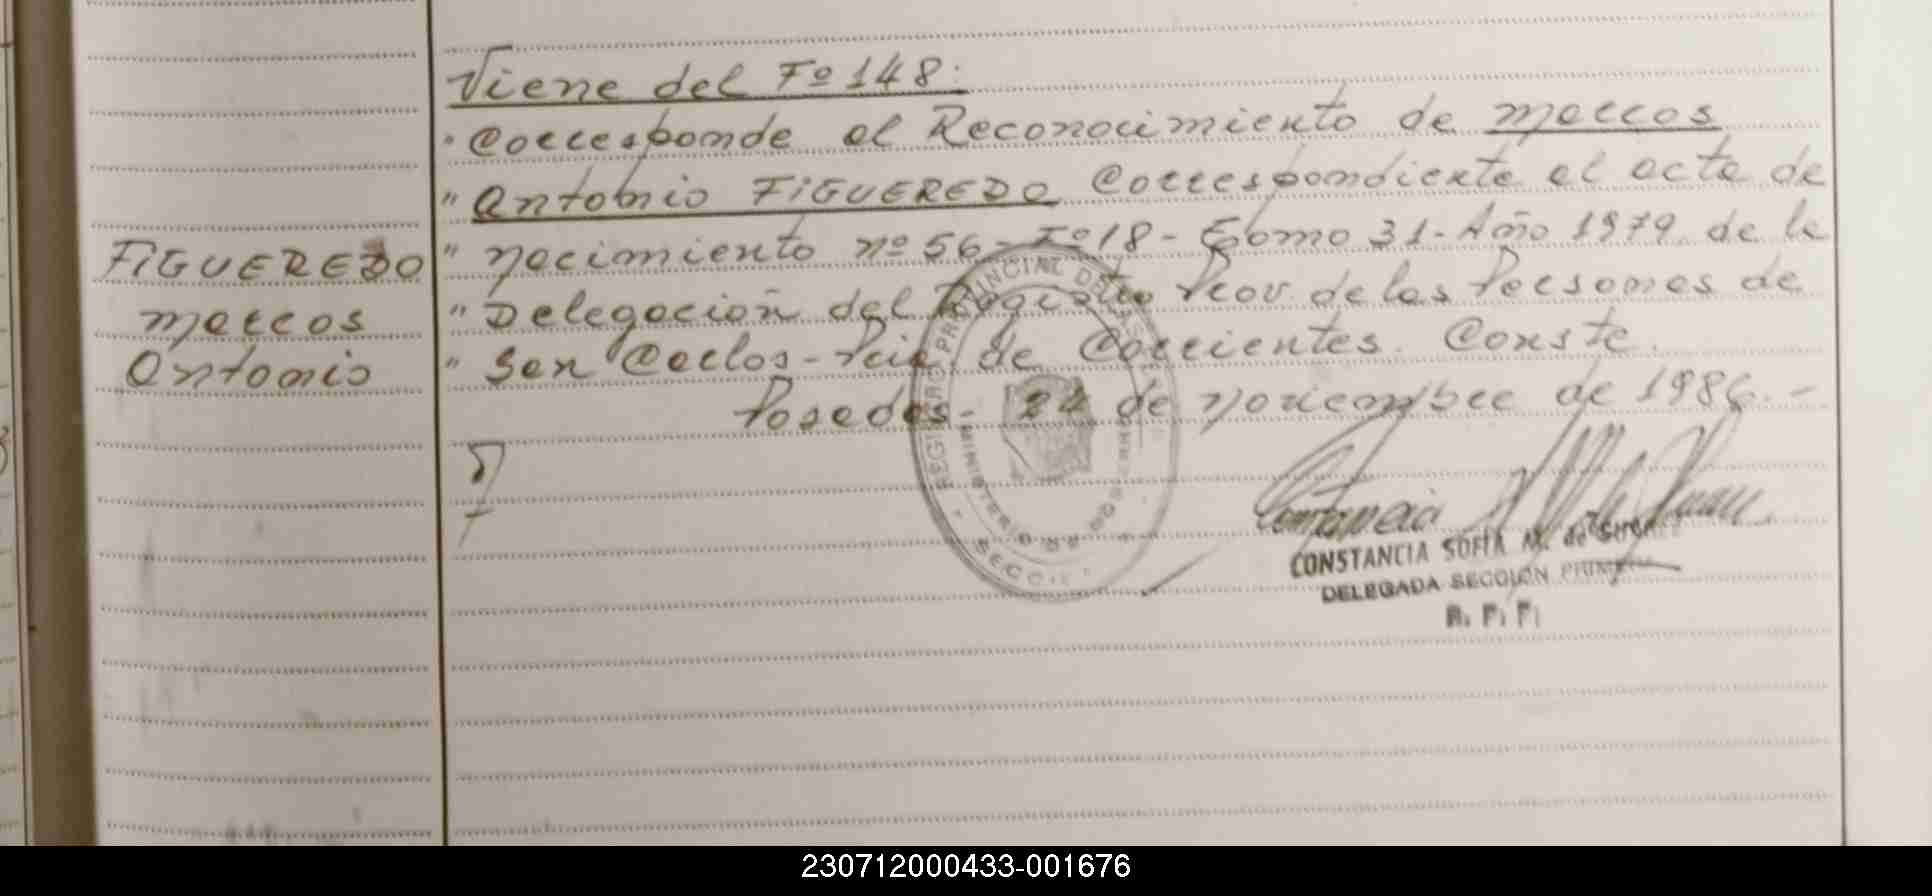 Viene del Fº 148:
" Corresponde al Reconocimiento de Marcos
" Antonio FIGUEREDO Correspondiente al acta de
FIGUEREDO " nacimiento nº 56 - Fº 18 - Tomo 31 - Año 1979 de la
Marcos " Delegación del Registro Prov. de las Personas de
Antonio " San Carlos - Pcia. de Corrientes. Conste.
Posadas - 24 de noviembre de 1986. -
REGISTRO PROVINCIAL DE LAS
MINISTERIO DE GOBIERNO
SECCIÓN
CONSTANCIA SOFIA M. de
DELEGADA SECCION PRIMERA
R. P. P.
230712000433-001676